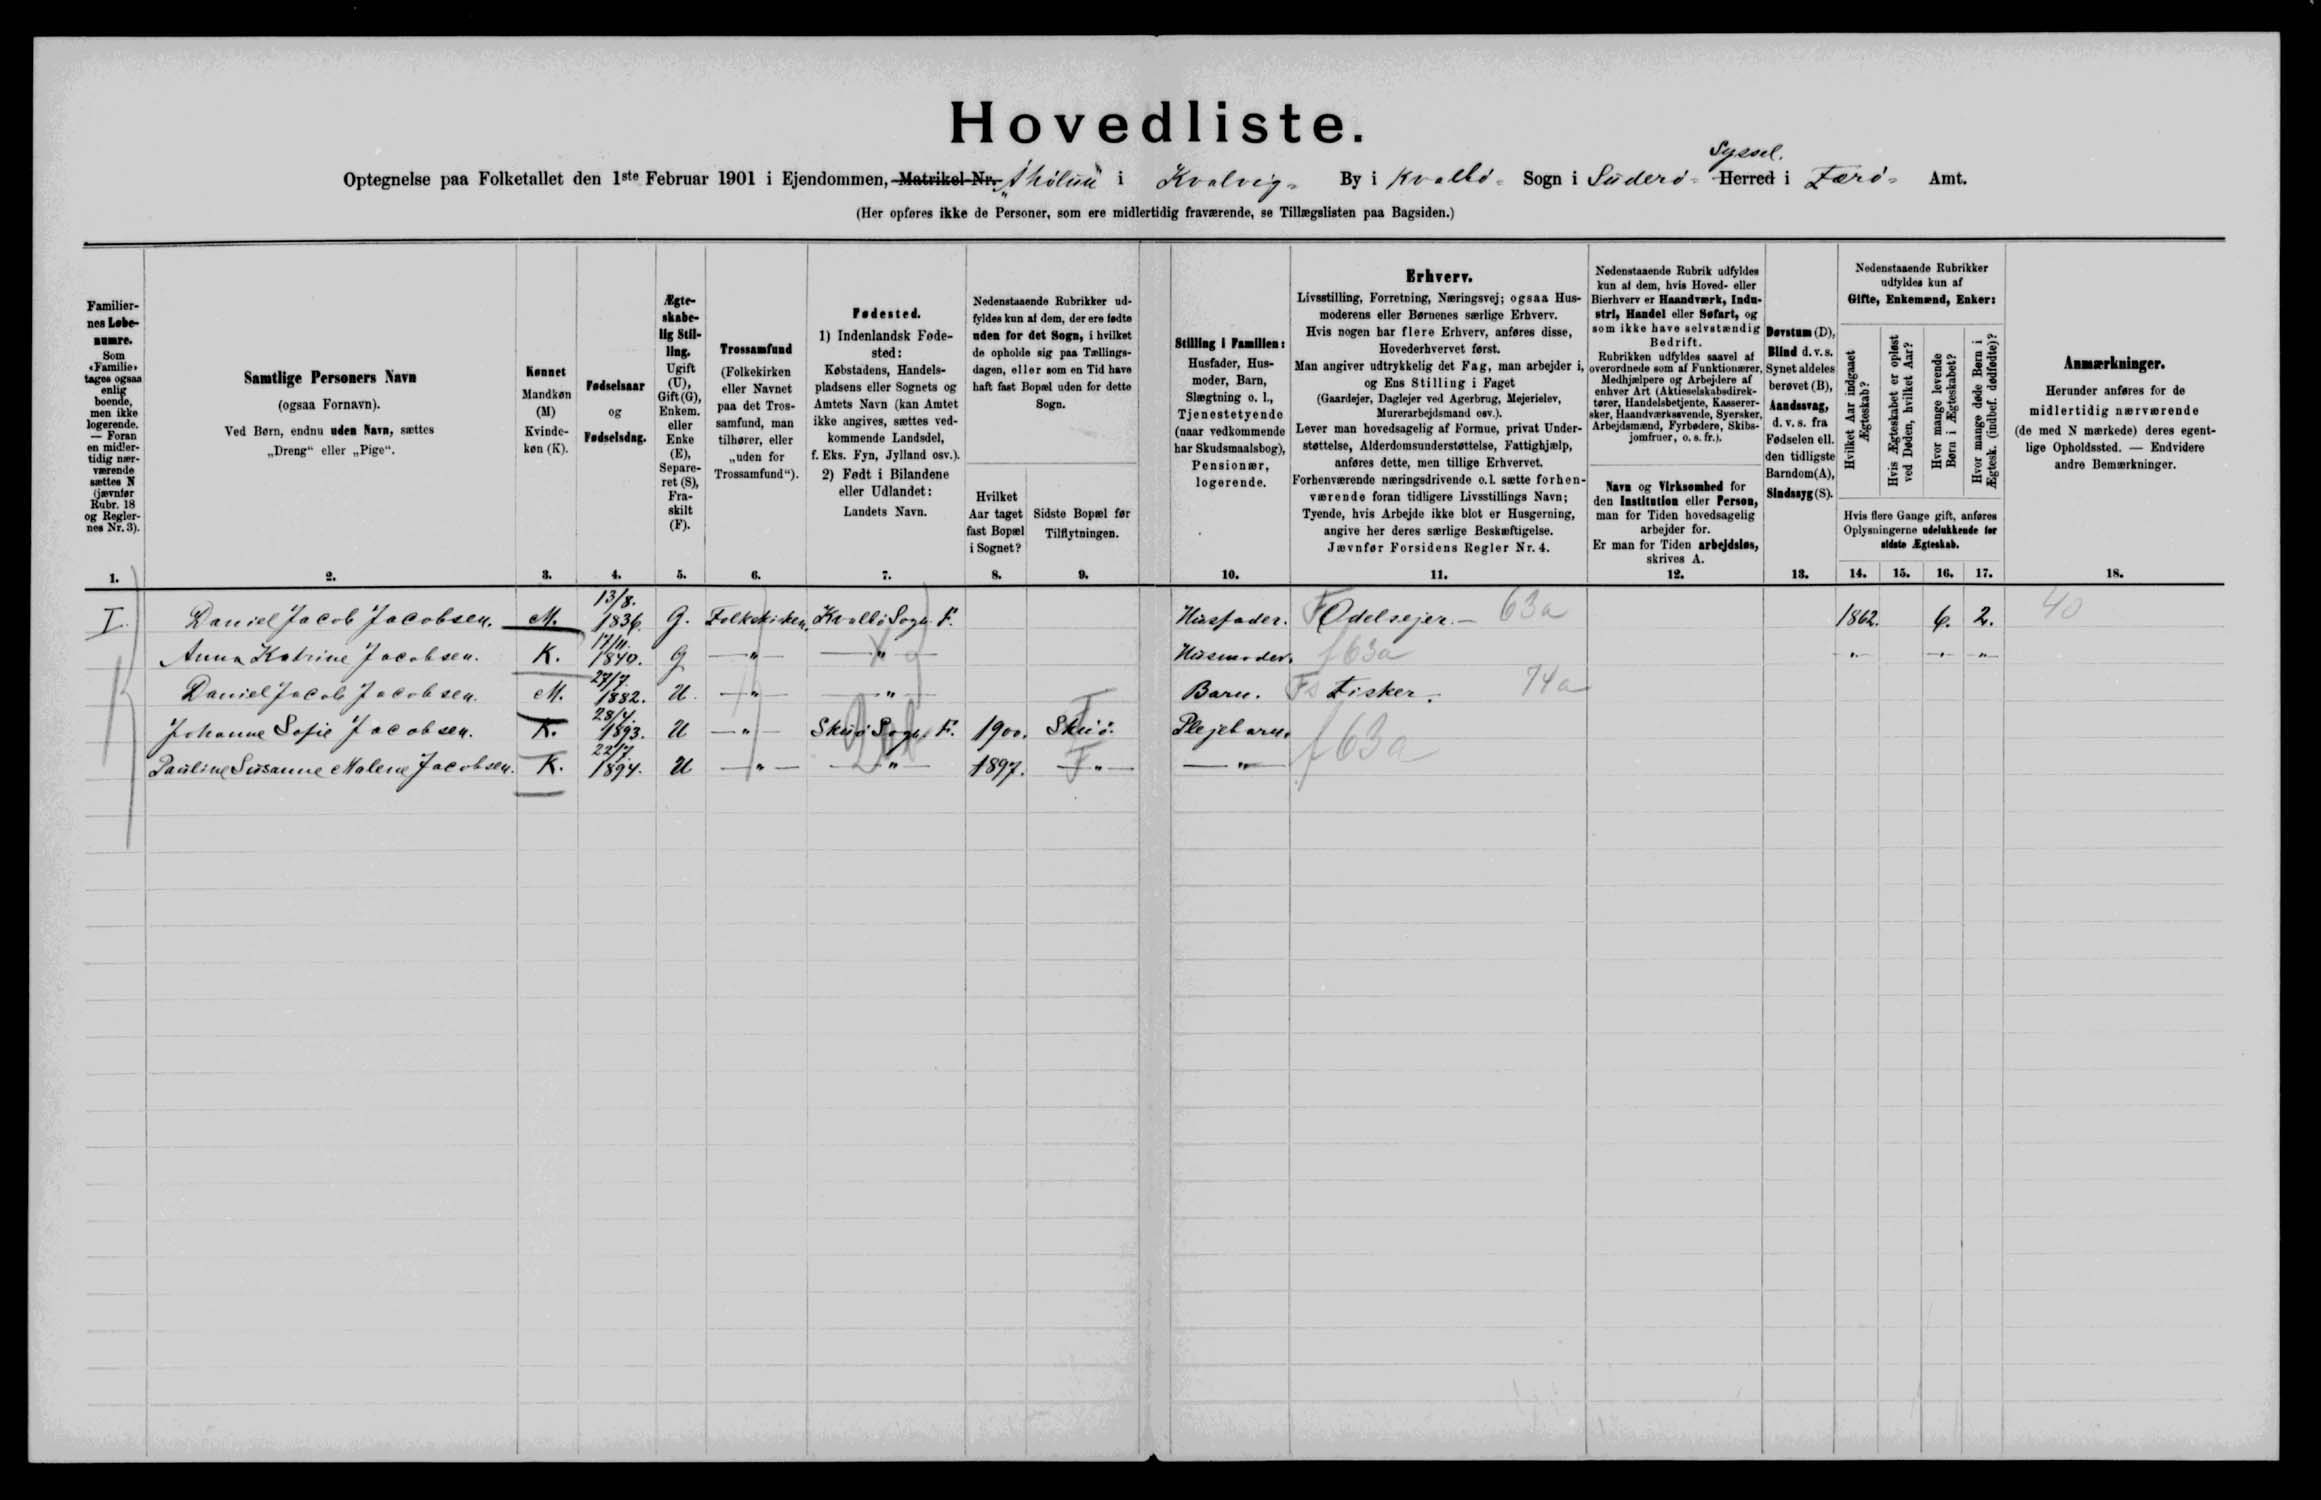 Hovedliste.
Syssel.
Optegnelse paa Folketallet den 1ste Februar 1901 i Ejendommen, Matrikel-Nr. i Kvalvig- By i Kvalbø- Sogn i Suderø- Herred i Færø- Amt.
(Her opføres ikke de Personer, som ere midlertidig fraværende, se Tillægslisten paa Bagsiden.)
Familier-
nes Løbe-
numre.
Som
«Familie»
tages ogsaa
enlig
boende,
men ikke
logerende.
— Foran
en midler-
tidig nær-
værende
sættes N
(jævnfør
Rubr. 18
og Regler-
nes Nr. 3).
1.
Samtlige Personers Navn
(ogsaa Fornavn).
Ved Børn, endnu uden Navn, sættes
„Dreng“ eller „Pige“.
2.
Kønnet
Mandkøn
(M)
Kvinde-
køn (K).
3.
Fødselsaar
og
Fødselsdag.
4.
Ægte-
skabe-
lig Stil-
ling.
Ugift
(U),
Gift (G),
Enkem.
eller
Enke
(E),
Separe-
ret (S),
Fra-
skilt
(F).
5.
Trossamfund
(Folkekirken
eller Navnet
paa det Tros-
samfund, man
tilhører, eller
„uden for
Trossamfund“).
6.
Fødested.
1) Indenlandsk Føde-
sted:
Købstadens, Handels-
pladsens eller Sognets og
Amtets Navn (kan Amtet
ikke angives, sættes ved-
kommende Landsdel,
f. Eks. Fyn, Jylland osv.).
2) Født i Bilandene
eller Udlandet:
Landets Navn.
7.
Nedenstaaende Rubrikker ud-
fyldes kun af dem, der ere fødte
uden for det Sogn, i hvilket
de opholde sig paa Tællings-
dagen, eller som en Tid have
haft fast Bopæl uden for dette
Sogn.
Hvilket
Aar taget
fast Bopæl
i Sognet?
8.
Sidste Bopæl før
Tilflytningen.
9.
Stilling i Familien:
Husfader, Hus-
moder, Barn,
Slægtning o. l.,
Tjenestetyende
(naar vedkommende
har Skudsmaalsbog),
Pensionær,
logerende.
10.
Erhverv.
Livsstilling, Forretning, Næringsvej; ogsaa Hus-
moderens eller Børnenes særlige Erhverv.
Hvis nogen har flere Erhverv, anføres disse,
Hovederhvervet først.
Man angiver udtrykkelig det Fag, man arbejder i,
og Ens Stilling i Faget
(Gaardejer, Daglejer ved Agerbrug, Mejerielev,
Murerarbejdsmand osv.).
Lever man hovedsagelig af Formue, privat Under-
støttelse, Alderdomsunderstøttelse, Fattighjælp,
anføres dette, men tillige Erhvervet.
Forhenværende næringsdrivende o.l. sætte forhen-
værende foran tidligere Livsstillings Navn;
Tyende, hvis Arbejde ikke blot er Husgerning,
angive her deres særlige Beskæftigelse.
Jævnfør Forsidens Regler Nr. 4.
11.
Nedenstaaende Rubrik udfyldes
kun af dem, hvis Hoved- eller
Bierhverv er Haandværk, Indu-
stri, Handel eller Søfart, og
som ikke have selvstændig
Bedrift.
Rubrikken udfyldes saavel af
overordnede som af Funktionærer,
Medhjælpere og Arbejdere af
enhver Art (Aktieselskabsdirek-
tører, Handelsbetjente, Kasserer-
sker, Haandværkssvende, Syersker,
Arbejdsmænd, Fyrbødere, Skibs-
jomfruer, o. s. fr.).
Navn og Virksomhed for
den Institution eller Person,
man for Tiden hovedsagelig
arbejder for.
Er man for Tiden arbejdsløs,
skrives A.
12.
Døvstum (D),
Blind d. v. s.
Synet aldeles
berøvet (B),
Aandssvag,
d. v. s. fra
Fødselen ell.
den tidligste
Barndom (A),
Sindssyg (S).
13.
Nedenstaaende Rubrikker
udfyldes kun af
Gifte, Enkemænd, Enker:
Hvilket Aar indgaaet
Ægteskab?
Hvis Ægteskabet er opløst
ved Døden, hvilket Aar?
Hvor mange levende
Børn i Ægteskabet?
Hvor mange døde Børn i
Ægtesk. (indbef. dødfødte)?
Hvis flere Gange gift, anføres
Oplysningerne udelukkende for
sidste Ægteskab.
14. 15. 16. 17.
Anmærkninger.
Herunder anføres for de
midlertidig nærværende
(de med N mærkede) deres egent-
lige Opholdssted. — Endvidere
andre Bemærkninger.
18.
I. Daniel Jacob Jacobsen. M. 13/8. 1836. G. Folkekirken. Kvalbø Sogn F. Husfader. F Odelsejer. — 63a 1862. 6. 2. 40
Anna Katrine Jacobsen. K. 1840. G —"— —"— Husmoder. f 63a —"— —"— —"—
Daniel Jacob Jacobsen. M. 27/7. 1882. U. —"— —"— Barn. Fs Fisker. 74a
Johanne Sofie Jacobsen. K. 28/4. 1893. U —"— Skuø Sogn. F. 1900. Skuø. Plejebarn.
Pauline Susanne Malene Jacobsen. K. 22/7. 1894. U —"— —"— 1897. —"— —"— f 63a